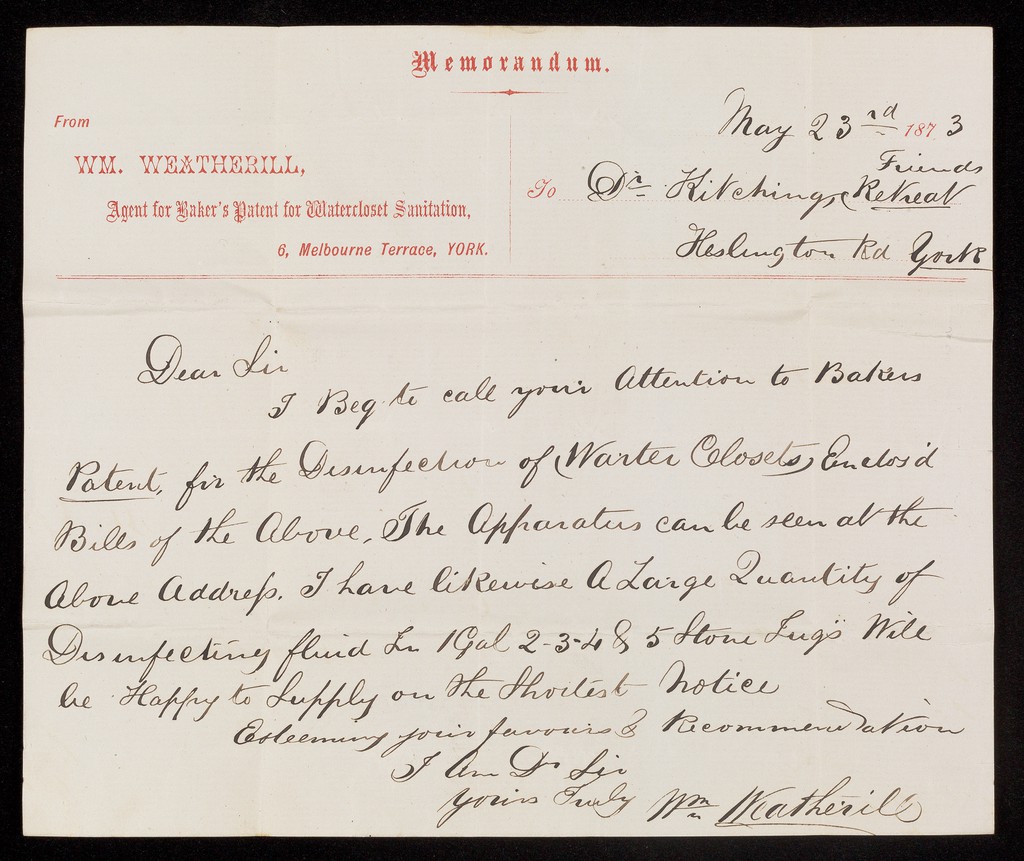 Memorandum.
From
WM. WEATHERILL,
Agent for Baker's Patent for Watercloset Sanitation,
6, Melbourne Terrace, YORK.
May 23rd 1873
To Dr Kitching, Friends Retreat
Heslington Rd York
Dear Sir
I Beg to call your Attention to Bakers
Patent, for the Disinfection of (Warter Closets) Enclos'd
Bills of the Above, The Apparatus can be seen at the
Above Address. I have likewise A Large Quantity of
Disinfecting fluid In 1 Gal 2-3-4 & 5 Stone Jugs Will
be Happy to Supply on the Shortest Notice
Esteeming your favours & Recommendation
I Am Dr Sir
Yours Truly Wm Weatherill